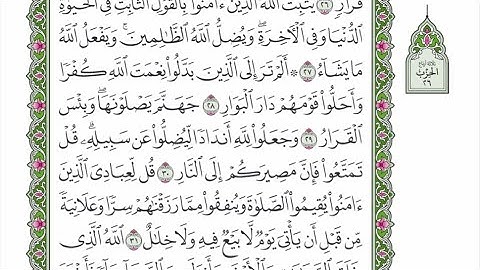 قَرَارٍ ٢٦ يُثَبِّتُ ٱللَّهُ ٱلَّذِينَ ءَامَنُوا۟ بِٱلْقَوْلِ ٱلثَّابِتِ فِى ٱلْحَيَوٰةِ
ٱلدُّنْيَا وَفِى ٱلْـَٔاخِرَةِ ۖ وَيُضِلُّ ٱللَّهُ ٱلظَّـٰلِمِينَ ۚ وَيَفْعَلُ ٱللَّهُ
مَا يَشَآءُ ٢٧ ۞ أَلَمْ تَرَ إِلَى ٱلَّذِينَ بَدَّلُوا۟ نِعْمَتَ ٱللَّهِ كُفْرًا
وَأَحَلُّوا۟ قَوْمَهُمْ دَارَ ٱلْبَوَارِ ٢٨ جَهَنَّمَ يَصْلَوْنَهَا ۖ وَبِئْسَ
ٱلْقَرَارُ ٢٩ وَجَعَلُوا۟ لِلَّهِ أَندَادًا لِّيُضِلُّوا۟ عَن سَبِيلِهِۦ ۗ قُلْ
تَمَتَّعُوا۟ فَإِنَّ مَصِيرَكُمْ إِلَى ٱلنَّارِ ٣٠ قُل لِّعِبَادِىَ ٱلَّذِينَ
ءَامَنُوا۟ يُقِيمُوا۟ ٱلصَّلَوٰةَ وَيُنفِقُوا۟ مِمَّا رَزَقْنَـٰهُمْ سِرًّا وَعَلَانِيَةً
مِّن قَبْلِ أَن يَأْتِىَ يَوْمٌ لَّا بَيْعٌ فِيهِ وَلَا خِلَـٰلٌ ٣١ ٱللَّهُ ٱلَّذِى
الحزب
٢٦